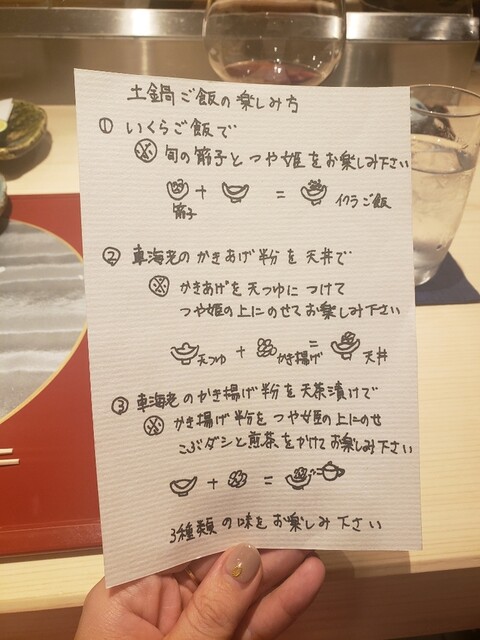 土鍋ご飯の楽しみ方
① いくらご飯で
旬の筋子とつや姫をお楽しみ下さい
筋子 + = イクラご飯
② 車海老のかきあげ半分を天丼で
かきあげを天つゆにつけて
つや姫の上にのせてお楽しみ下さい
天つゆ + かき揚げ = 天丼
③ 車海老のかき揚げ半分を天茶漬けで
かき揚げ半分をつや姫の上にのせ
こぶダシと煎茶をかけてお楽しみ下さい
+ =
3種類の味をお楽しみ下さい